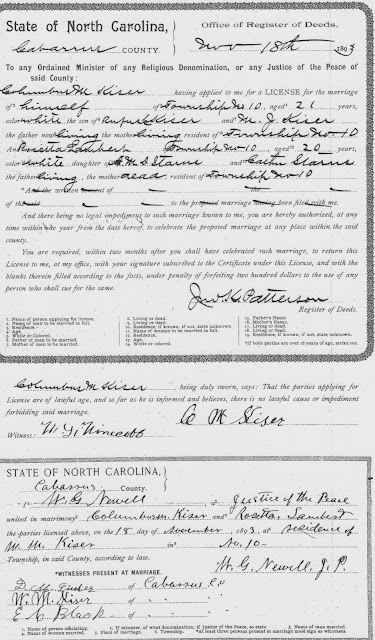 State of North Carolina,
Office of Register of Deeds.
Cabarrus COUNTY.
Nov 18th 1893
To any Ordained Minister of any Religious Denomination, or any Justice of the Peace of
said County:
Columbus M Kiser having applied to me for a LICENSE for the marriage
of himself of Township No 10, aged 21 years,
color white the son of Rufus Kiser and M. J. Kiser
the father now living, the mother living resident of Township No 10
And Rosetta Lambert Township No 10, aged 20 years,
color white daughter of A. M. D Starns and Starns
the father living, the mother dead, resident of Township No 10
"And the written consent of the
of the said to the proposed marriage having been filed with me.
And there being no legal impediment to such marriage known to me, you are hereby authorised, at any
time within one year from the date hereof, to celebrate the proposed marriage at any place within the said
county.
You are required, within two months after you shall have celebrated such marriage, to return this
License to me, at my office, with your signature subscribed to the Certificate under this License, and with the
blanks therein filled according to the facts, under penalty of forfeiting two hundred dollars to the use of any
person who shall sue for the same.
Jno. K. Patterson
Register of Deeds.
1. Name of person applying for license.
2. Name of man to be married in full.
3. Residence.
4. Age.
5. White or Colored.
6. Father of man to be married.
7. Mother of man to be married.
8. Living or dead.
9. Living or dead.
10. Residence, if known, if not, state unknown.
11. Name of woman to be married in full.
12. Residence.
13. Age.
14. White or colored.
15. Father's Name.
16. Mother's Name.
17. Living or dead.
18. Living or dead.
19. Residence, if known, if not, state unknown.
*If both parties are over 18 years of age, strike out.
Columbus M Kiser being duly sworn, says: That the parties applying for
License are of lawful age, and so far as he is informed and believes, there is no lawful cause or impediment
forbidding said marriage.
C M Kiser
Witness:
STATE OF NORTH CAROLINA,
Cabarrus County.
I, W. G. Newell, a Justice of the Peace
united in matrimony Columbus M. Kiser and Rosetta Lambert
the parties licensed above, on the 18 day of November, 1893, at residence of
M. M. Kiser in No. 10
Township, in said County, according to law.
W. G. Newell, J. P.
WITNESSES PRESENT AT MARRIAGE.
of Cabarrus Co
of
E. C. Black of